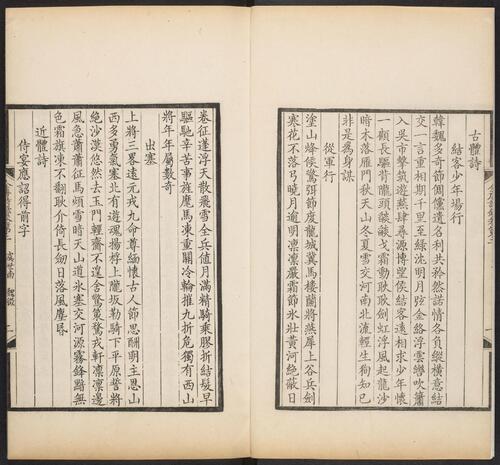 古體詩
結客少年場行
韓魏多奇節倜儻遺名利共矜然諾情各負縱橫意結
交一言重相期千里至綠沈明月弦金絡浮雲轡吹簫
入吳市擊筑遊燕肆尋源博望侯結客遠相求少年懷
一顧長驅背隴頭燄燄戈霜動耿耿劍虹浮風起龍沙
暗木落雁門秋天山冬夏雪交河南北流輕生狥知已
非是爲身謀
從軍行
塗山烽候驚弭節度龍城冀馬樓蘭將燕犀上谷兵劍
寒花不落弓曉月逾明凛凛嚴霜節冰壯黃河絕蔽日
卷征蓬浮天散飛雪全兵值月滿精騎乘膠折結髮早
驅馳辛苦事旌麾馬凍重關冷輪摧九折危獨有西山
將年年屬數奇
出塞
上將三畧遠元戎九命尊緬懷古人節思酬明主恩山
西多勇氣塞北有遊魂揚桴上隴坂勒騎下平原誓將
絕沙漠悠然去玉門輕齎不遑舍驚策騖戎軒凛凛邊
風急蕭蕭征馬煩雪暗天山道氷塞交河源霧鋒黯無
色霜旗凍不翻耿介倚長劒日落風塵昬
近體詩
侍宴應詔得前字
虞世南 魏徵
二